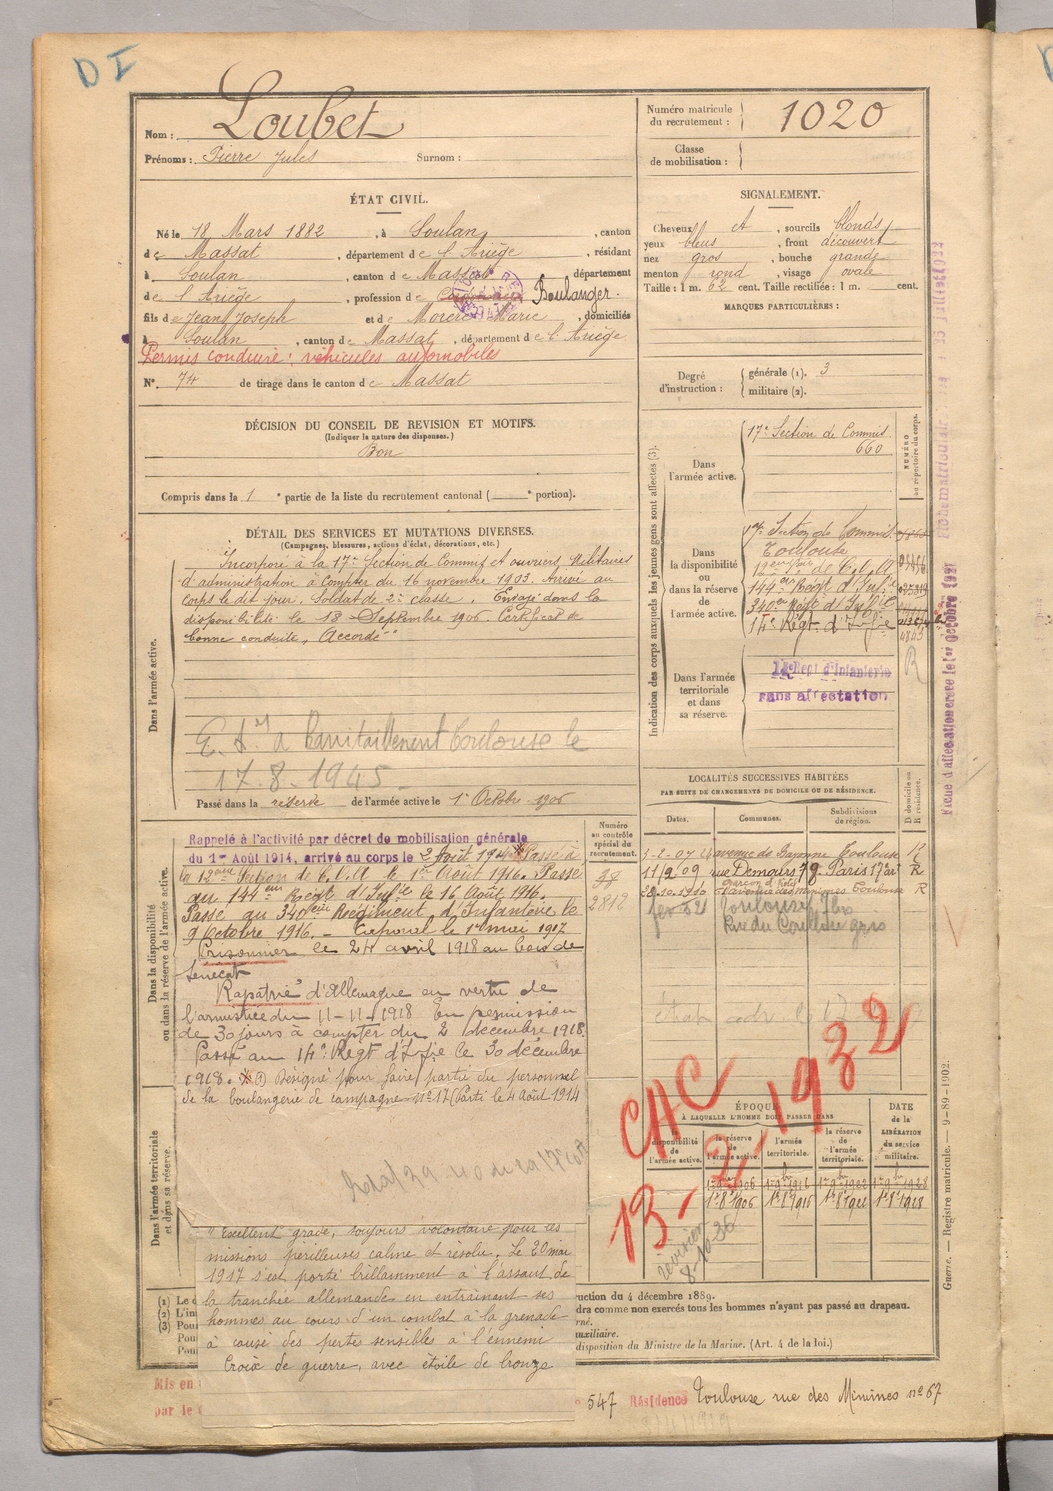 D I
Nom : Loubet
Prénoms : Pierre Jules Surnom :
Numéro matricule du recrutement : 1020
Classe de mobilisation :
ÉTAT CIVIL.
Né le 18 Mars 1882, à Soulan, canton
de Massat, département de l'Ariège, résidant
à Soulan, canton de Massat département
de l'Ariège, profession de Boulanger.
fils de Jean Joseph et de Marie, domiciliés
à Soulan, canton de Massat, département de l'Ariège
Permis conduire : véhicules automobiles
N° 74 de tirage dans le canton de Massat
SIGNALEMENT.
Cheveux et, sourcils blonds
yeux bleus, front découvert
nez gros, bouche grande
menton rond, visage ovale
Taille : 1 m. 62 cent. Taille rectifiée : 1 m. cent.
MARQUES PARTICULIÈRES :
Degré d'instruction : générale (1). 3
militaire (2).
DÉCISION DU CONSEIL DE REVISION ET MOTIFS.
(Indiquer la nature des dispenses.)
Bon
Compris dans la 1e partie de la liste du recrutement cantonal ( e portion).
DÉTAIL DES SERVICES ET MUTATIONS DIVERSES.
(Campagnes, blessures, actions d'éclat, décorations, etc.)
Dans l'armée active.
Incorporé à la 17e Section de Commis et ouvriers Militaires
d'administration à compter du 16 novembre 1903. Arrivé au
corps le dit jour. Soldat de 2e classe. Envoyé dans la
disponibilité le 18 Septembre 1906. Certificat de
bonne conduite "Accordé"
Toulouse le
17.8.1945
Passé dans la réserve de l'armée active le 1er Octobre 1906
Indication des corps auxquels les jeunes gens sont affectés (3).
NUMÉRO au répertoire du corps.
Dans l'armée active.
17e Section de Commis.
660
Dans la disponibilité ou dans la réserve de l'armée active.
17e Section de Commis
Toulouse
144e Régt d'Infie
340e Régt d'Infie
14e Régt d'Infie
4843
R
Dans l'armée territoriale et dans sa réserve.
14e Régt d'Infanterie
sans affectation
Fiche d'affectation créée le 1er Octobre 1921
LOCALITÉS SUCCESSIVES HABITÉES
PAR SUITE DE CHANGEMENTS DE DOMICILE OU DE RÉSIDENCE.
D domicile ou R résidence.
Dates. Communes. Subdivisions de région.
avenue de Bayonne Toulouse R
11/2 09 rue Demours 78 Paris 17e arrt R
28.10.1910 Toulouse R
Toulouse
Numéro au contrôle spécial du recrutement.
38
2812
Dans la disponibilité ou dans la réserve de l'armée active.
Rappelé à l'activité par décret de mobilisation générale
du 1er Août 1914, arrivé au corps le 2 Août 1914 Passé à
la 12ème Section de C.O.A le 1er Août 1916. Passé
au 144ème Régt d'Infie le 16 Août 1916.
Passé au 340ème Régiment d'Infanterie le
9 Octobre 1916. – Caporal le 1er mai 1917
Prisonnier le 24 avril 1918 au bois de
Sénécat
"Rapatrié" d'Allemagne en vertu de
l'armistice du 11-11-1918. En permission
de 30 jours à compter du 2 décembre 1918.
Passé au 14e Régt d'Infie le 30 décembre
1918. Désigné pour faire partie du personnel
de la boulangerie de campagne n° 17 (Parti le 4 Août 1914
CHC
13-2-1932
ÉPOQUE
À LAQUELLE L'HOMME DOIT PASSER DANS
la disponibilité de l'armée active. la réserve de l'armée active. l'armée territoriale. la réserve de l'armée territoriale.
DATE de la LIBÉRATION du service militaire.
1er 8bre 1906
révision
8-10-36
Dans l'armée territoriale et dans sa réserve.
"Excellent gradé, toujours volontaire pour les
missions périlleuses calme et résolu. Le 20 mai
1917 s'est porté brillamment à l'assaut de
la tranchée allemande en entraînant ses
hommes au cours d'un combat à la grenade
a causé des pertes sensibles à l'ennemi
Croix de guerre, avec étoile de bronze
Guerre. — Registre matricule. — 9-89-1902.
(1) Le d
(2) L'in
(3) Pou
Pou
Pou
uction du 4 décembre 1889.
dra comme non exercés tous les hommes n'ayant pas passé au drapeau.
rné.
uxiliaire.
disposition du Ministre de la Marine. (Art. 4 de la loi.)
Mis en
par le
547 Résidence Toulouse rue des Minimes n° 67